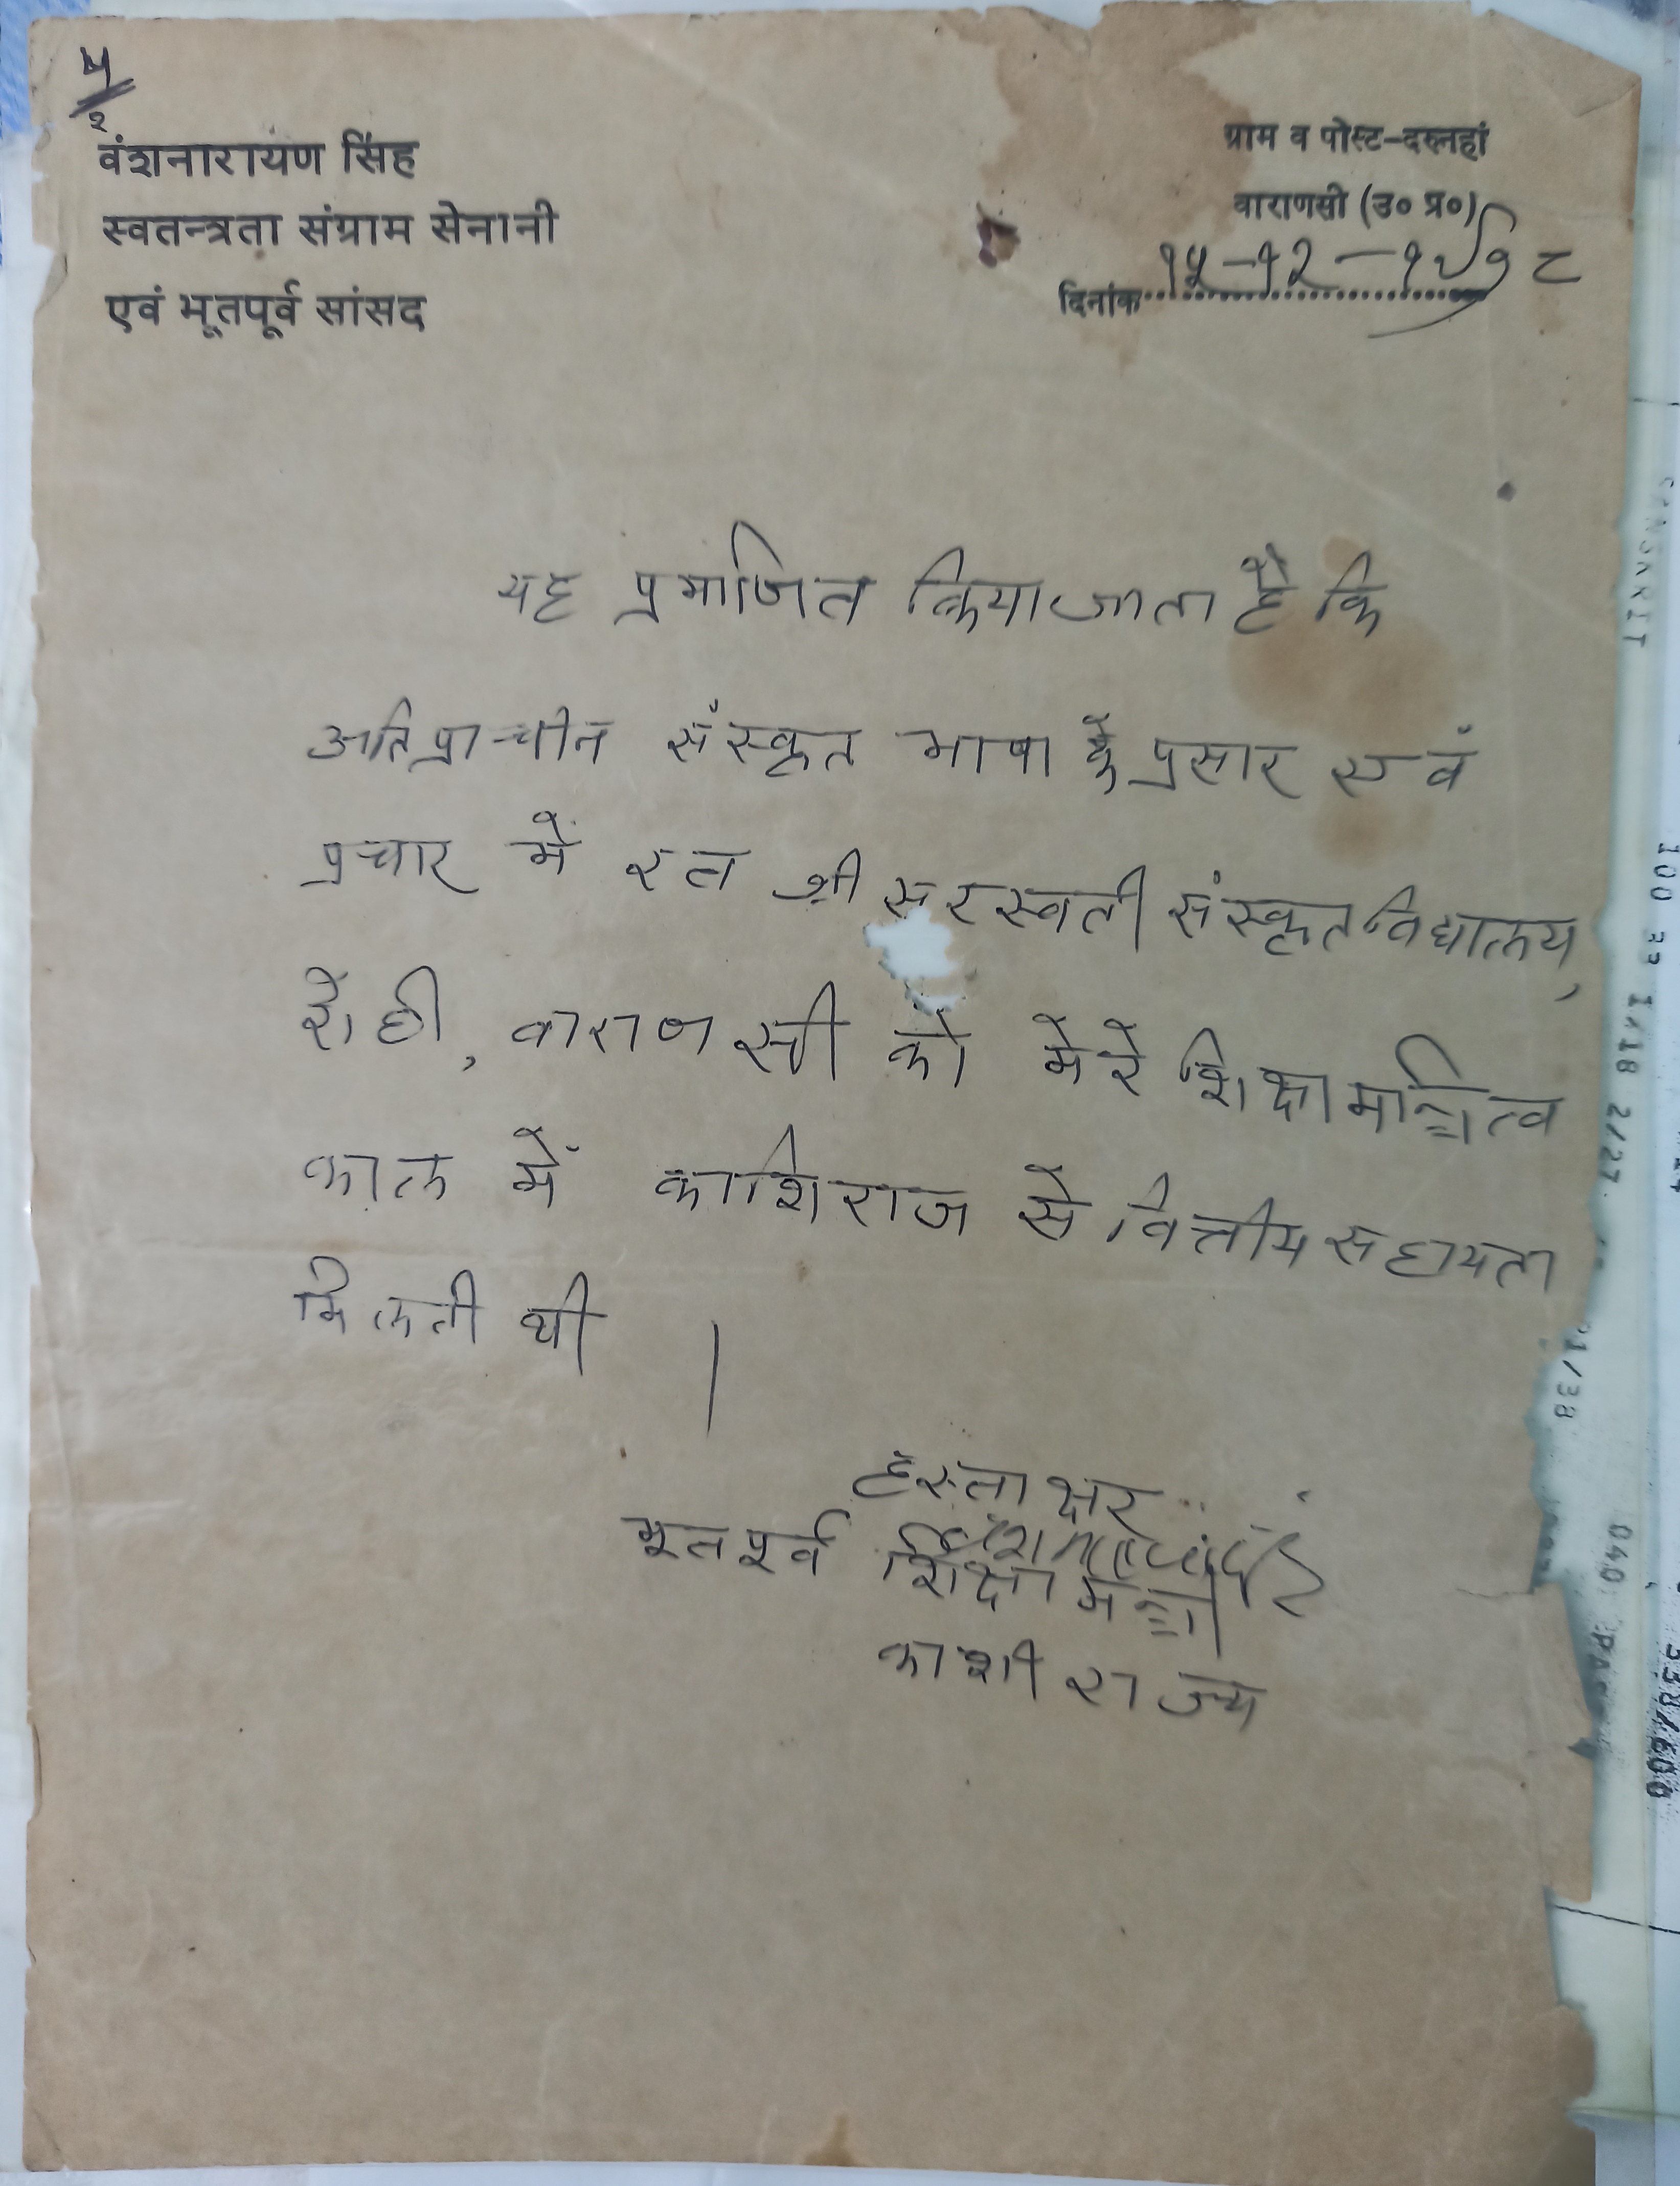 ५/२
वंशनारायण सिंह
स्वतन्त्रता संग्राम सेनानी
एवं भूतपूर्व सांसद
ग्राम व पोस्ट-दरुनहां
वाराणसी (उ० प्र०)
दिनांक १५-१२-१९७८
यह प्रमाणित किया जाता है कि
अतिप्राचीन संस्कृत भाषा के प्रसार एवं
प्रचार में रत श्री सरस्वती संस्कृत विद्यालय,
रोही, वाराणसी को मेरे शिक्षा मन्त्रित्व
काल में काशिराज से वित्तीय सहायता
मिलती थी ।
हस्ताक्षर
भूतपूर्व शिक्षा मन्त्री
काशी राज्य
SANSKRIT
100 33 1/18 2/27
21/38
040